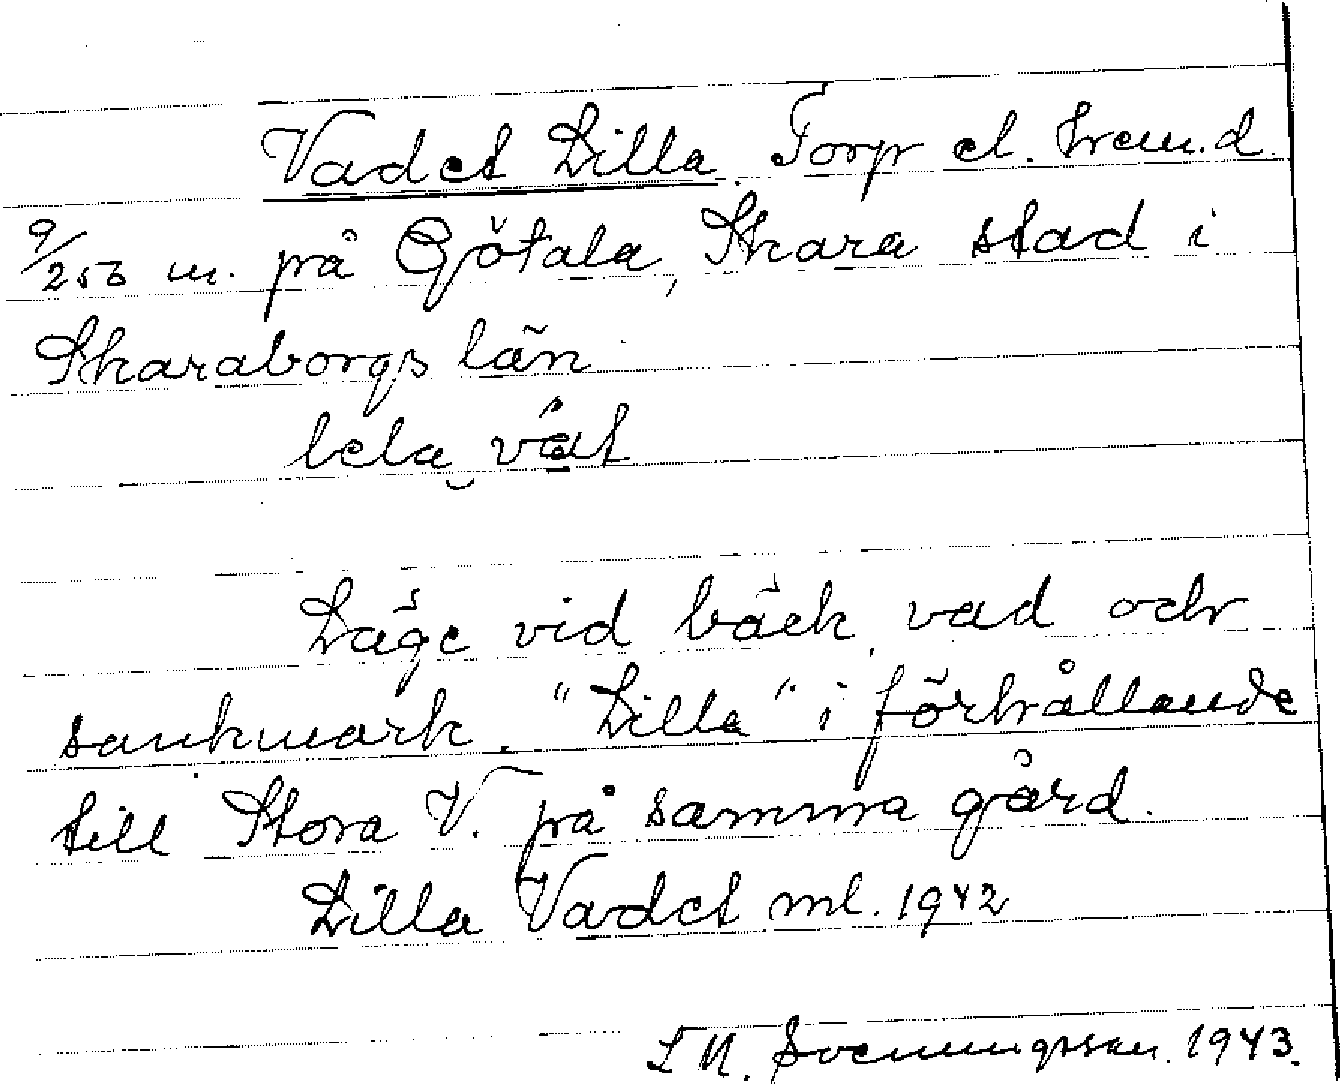 Vadet Lilla. Torp el. hem.d.
9/256 m. på Götala, Skara stad i
Skaraborgs län
lela vat
Läge vid bäck, vad och
sankmark. "Lilla" i förhållande
till Stora V. på samma gård.
Lilla Vadet ml. 1942
Svenungsson. 1943.